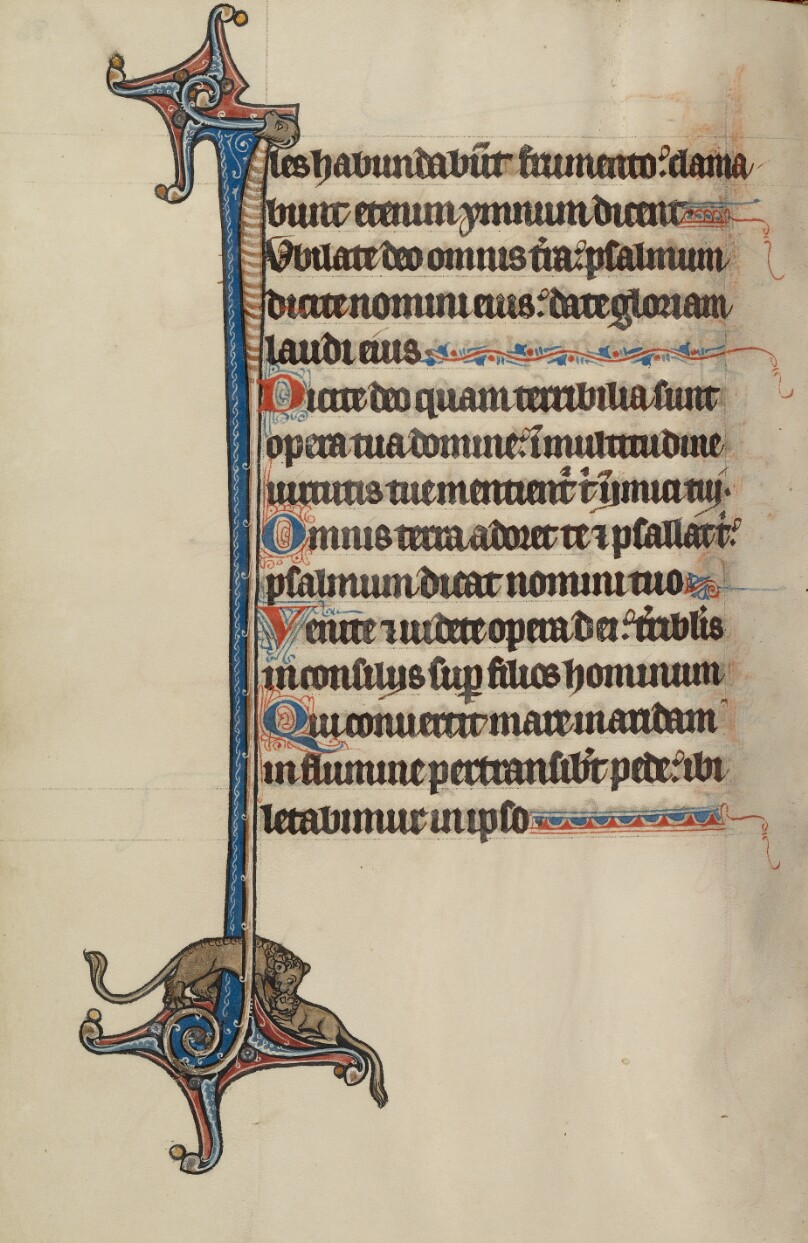 les habundabūt frumento: clama
bunt etenim ymnum dicent
Iubilate deo omnis tr̄a: psalmum
dicite nomini eius: date gloriam
laudi eius
Dicite deo quam terribilia sunt
opera tua domine: ī multitudine
uirtutis tue mentient᷑ t᷑ ijmici tuj.
Omnis terra adoret te ⁊ psallat t᷑:
psalmum dicat nomini tuo
Venite ⁊ uidete opera dei: tr̄ibl̄is
in consilijs suꝑ filios hominum
Qui conuertit mare in aridam
in flumine pertransib̄t pede: ibi
letabimur in ipso